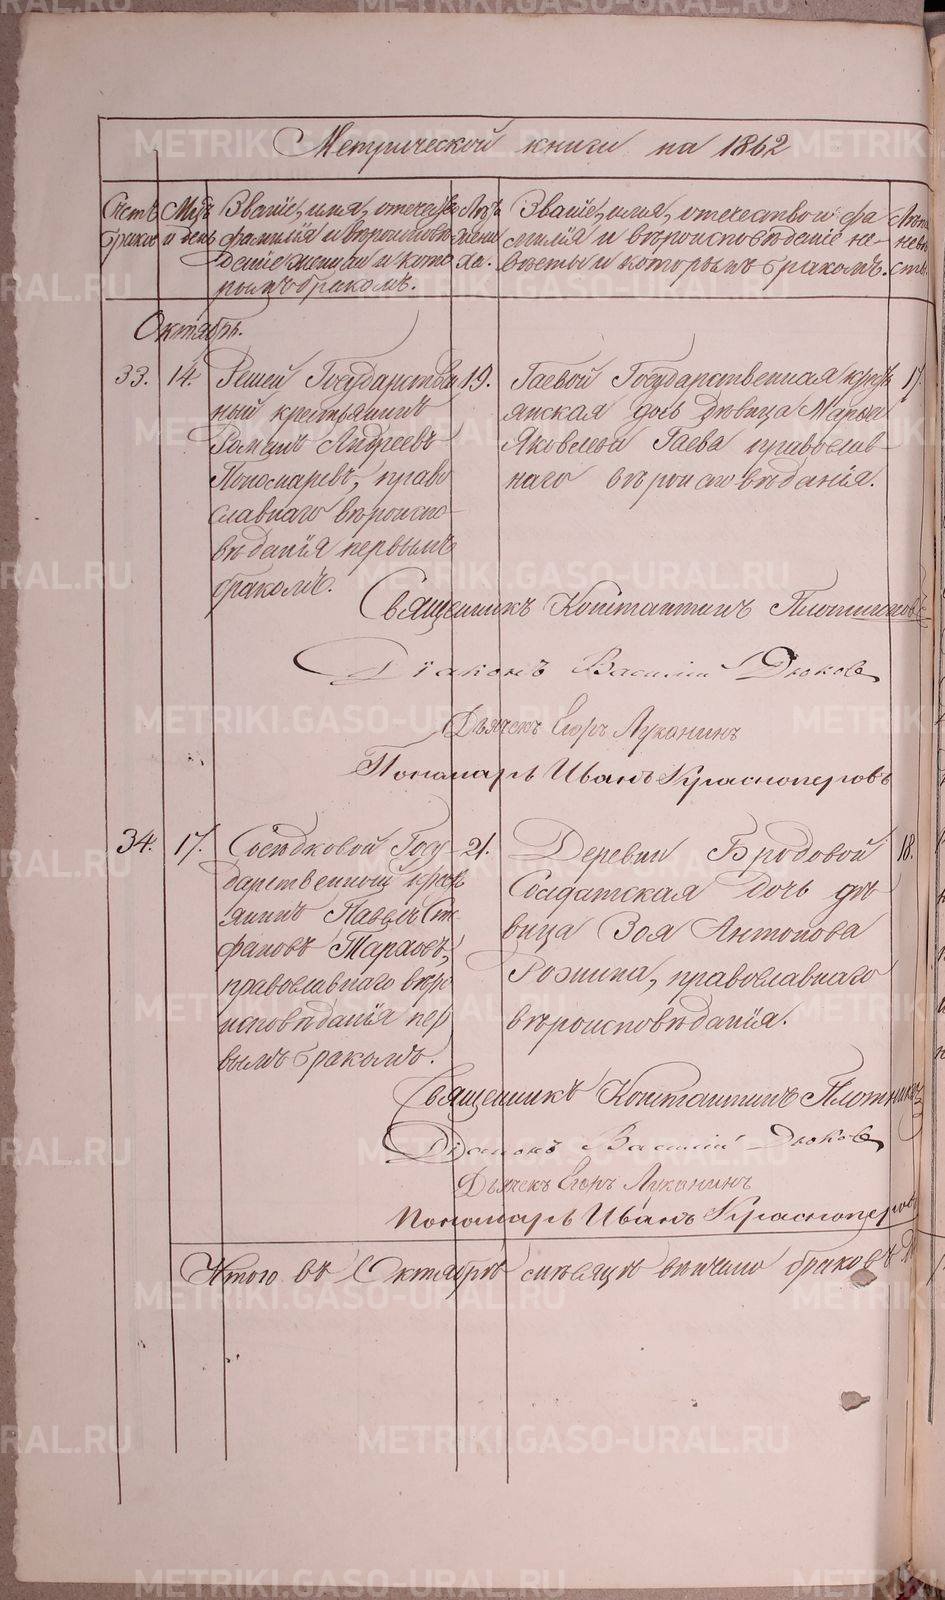 Метрической книги на 1862
Счетъ браковъ
Мцъ и день
Званіе, имя, отечество
фамилія и вероиспове-
деніе жениха и кото
рымъ бракомъ.
Лѣта жени ха.
Званіе, имя, отечество и фа
милія и вѣроисповѣданіе не-
вѣсты и которымъ бракомъ.
Лѣта невѣ сты.
Октябрь.
33. 14.
Решей Государствен
ный крестьянинъ
Романъ Андреевъ
Пономаревъ, право
славнаго вѣроиспо-
вѣданія первымъ
бракомъ.
19.
Гаевой Государственная кресть
янская дочь девица Марья
Яковлева Гаева православ-
наго вѣроисповѣданія.
17.
Священникъ Константинъ Плотниковъ
Діаконъ Василій Дюковъ
Дьячекъ Егоръ Луканинъ
Пономарь Иванъ Красноперовъ
34. 17.
Сосѣдковой Госу-
дарственный кресть
янинъ Павелъ Сте
фановъ Тарховъ,
православнаго вѣро
исповѣданія пер
вымъ бракомъ.
21.
Деревни Бродовой
Солдатская дочь дѣ
вица Зоя Антонова
Рожина, православнаго
вѣроисповѣданія.
18.
Священникъ Константинъ Плотниковъ
Діаконъ Василій Дюковъ
Дьячекъ Егоръ Луканинъ
Пономарь Иванъ Красноперовъ
Итого въ Октябрѣ мѣсяцѣ венчано браковъ
METRIKI.GASO-URAL.RU